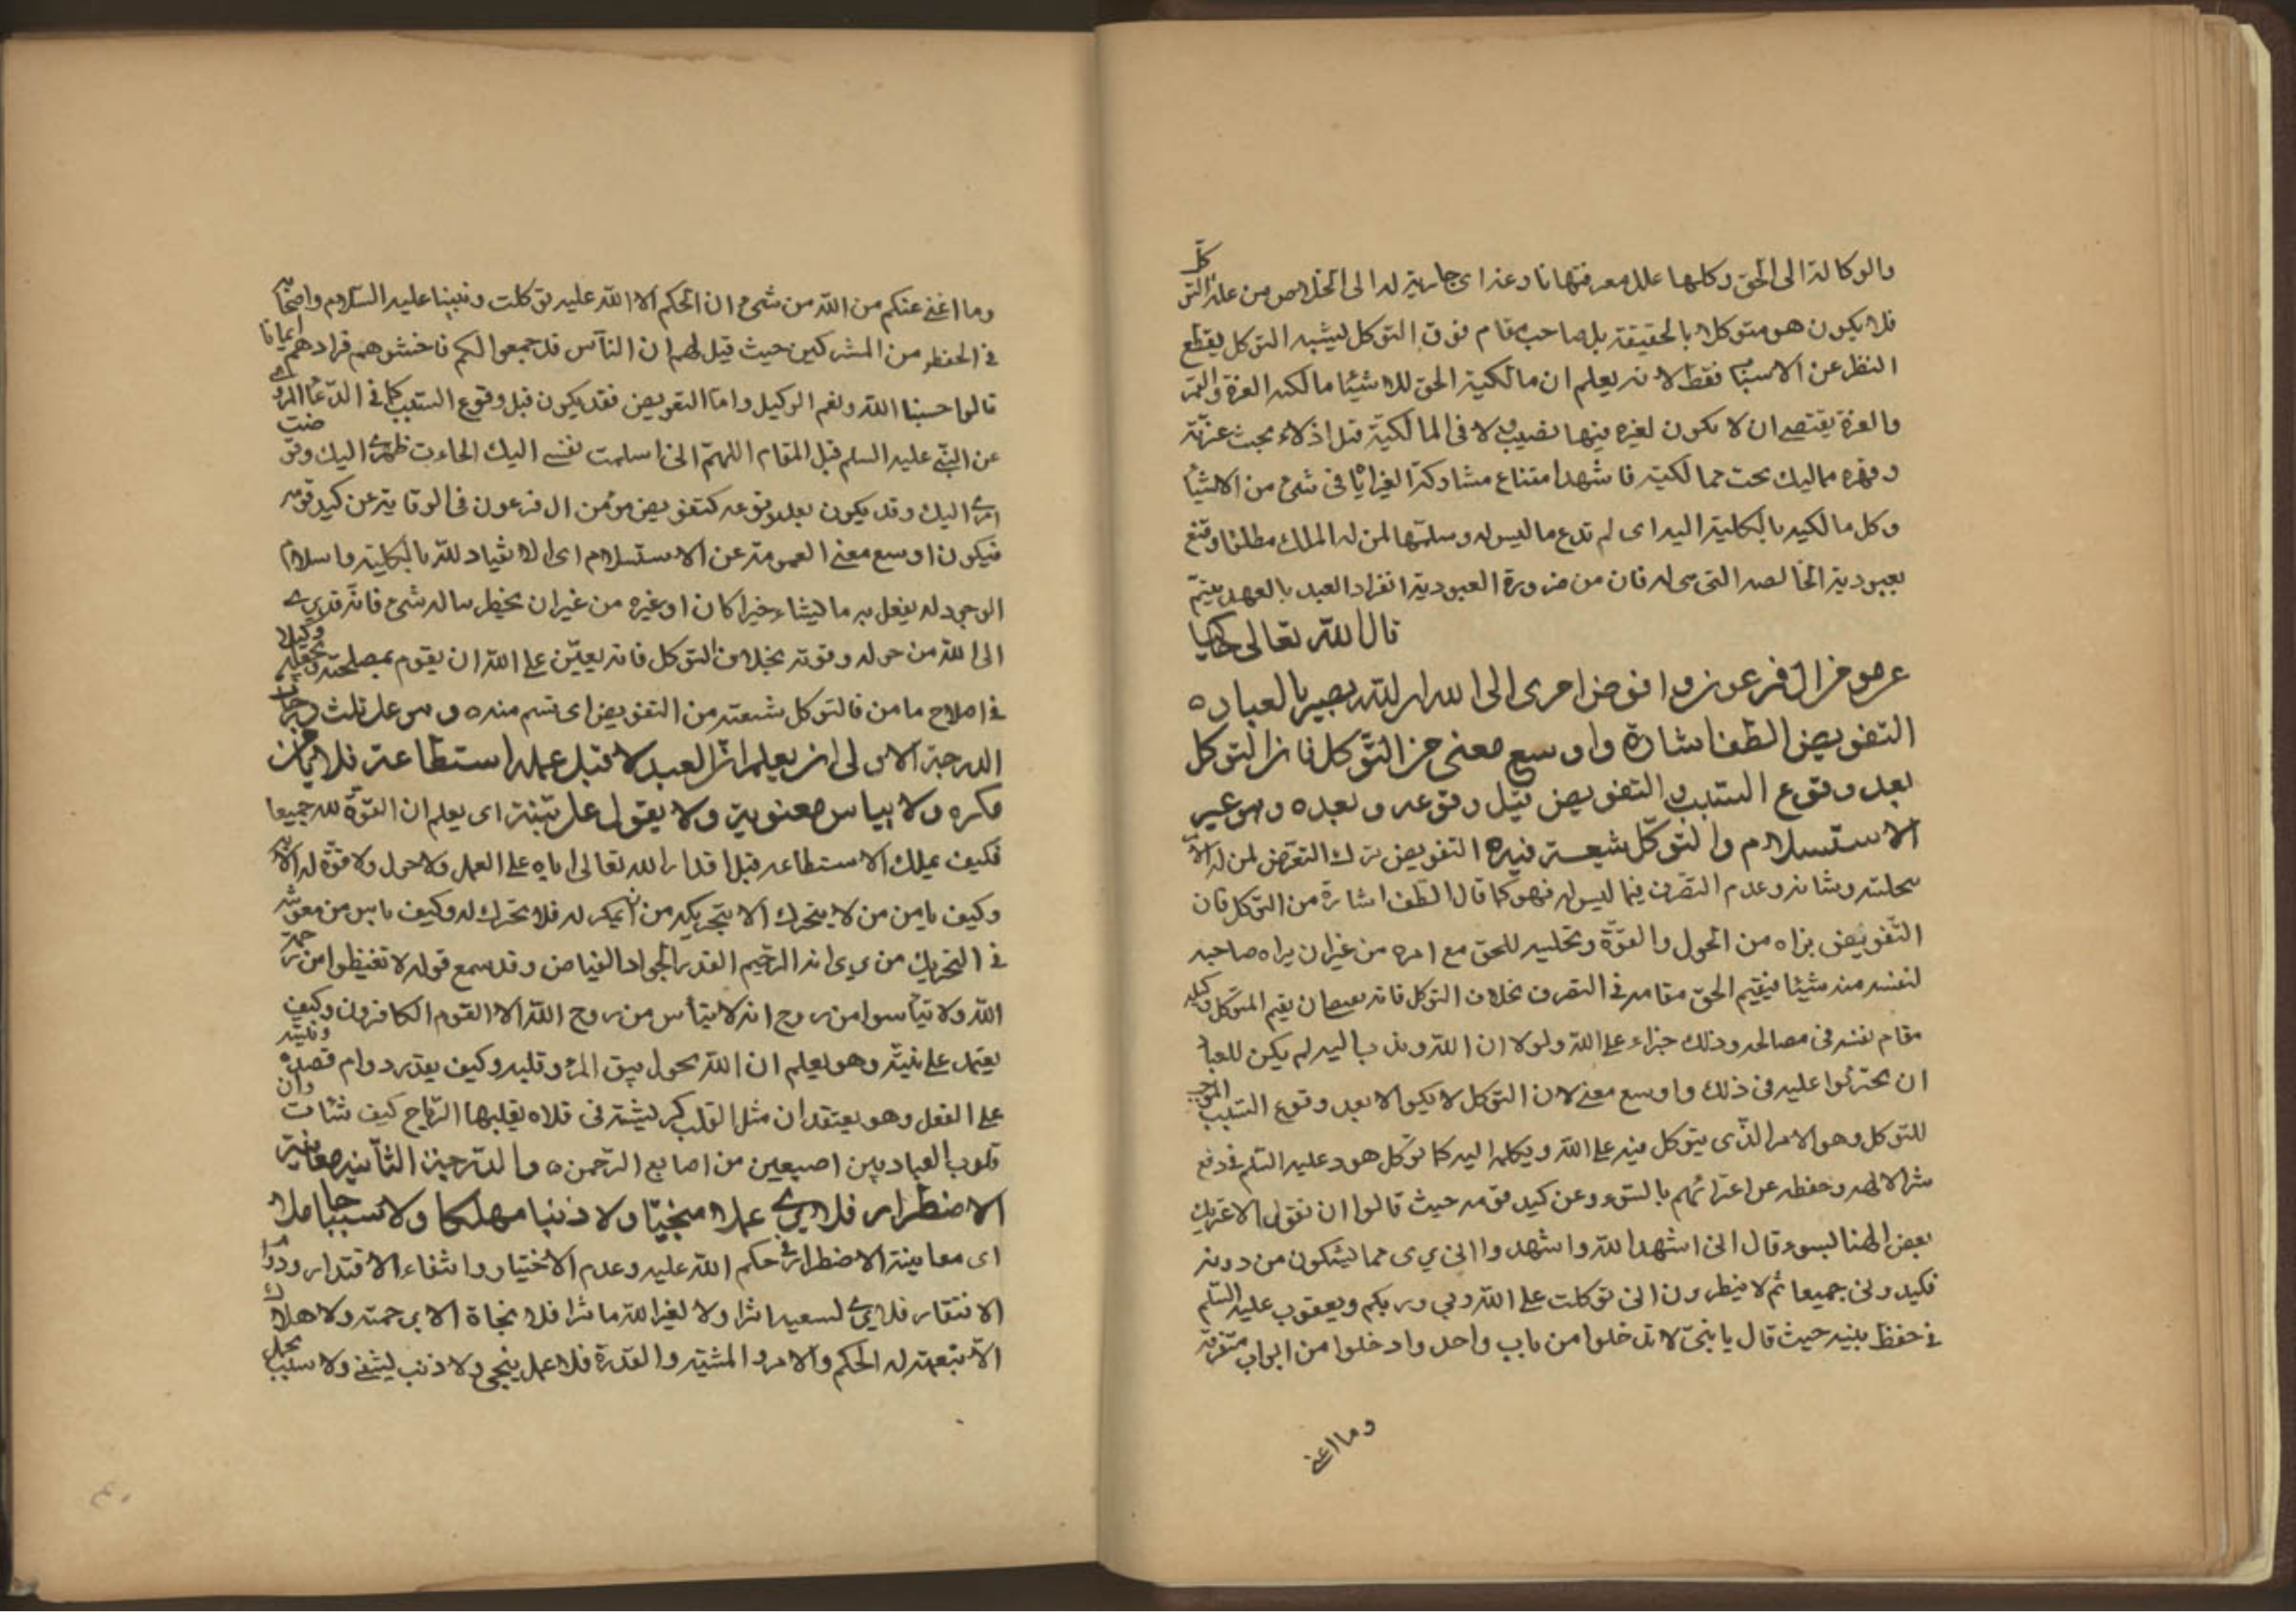 والوكالة الى الحق وكلها علل معرفتها نا دعة اى جاريه له الى الخلاص من علة التوكل
فلا يكون هو متوكلا بالحقيقة بل صاحب مقام فوق التوكل ليشبه التوكل يقطع
النظر عن الاسباب فقط لانه يعلم ان مالكية الحق للاشيئا مالكه العزة والقهر
والعزة يقتضى ان لا يكون لغيره فيها نصيب ولا فى المالكية قبل اذلاء تحت عزته
وقهره مماليك تحت مما لكيته فاشهد امتناع مشاركة الغير اياه فى شئ من الاشيئا
وكل مالكيه بالكلية اليه اى لم تدع ما ليس له وسلمتها لمن له الملك مطلقا وقنع
بعبودية الخالصه التى هى له فان من ضرورة العبودية انفراد العبد بالعهد
قال الله تعالى حاكيا
عن مومن ال فرعون وافوض امرى الى الله ان الله بصير بالعباد ه
التفويض الطف اشارة واوسع معنى من التوكل فان التوكل
بعد وقوع السبب والتفويض قبل وقوعه وبعده وهو عين
الاستسلام والتوكل شعبة فيه ه التفويض ترك التعرض لمن له الامر
بتخليته وشانه وعدم التصرف فيما ليس له فهو كما قال الطف اشارة من التوكل فان
التفويض براه من الحول والقوة وتخليه للحق مع امره من غير ان يراه صاحبه
لنفسه منه شيئا فيقيم الحق مقامه فى التصرف بخلاف التوكل فانه يقيم المتوكل وكيله
مقام نفسه فى مصالحه وذلك جراء على الله ولولا ان الله وندب اليه لم يكن للعباد
ان يجترئوا عليه فى ذلك واوسع معنى لان التوكل لا يكون الا بعد وقوع السبب الموجب
للتوكل وهو الامر الذى يتوكل فيه على الله ويكله اليه كما توكل هود عليه السلم فى دفع
شر الالهه وحفظه عن اعترائهم بالسوء وعن كيد قومه حيث قالوا ان نقول الا اعتريك
بعض الهتنا بسوء قال انى اشهد الله واشهدوا انى برى مما تشركون من دونه
فكيدونى جميعا ثم لا تنظرون انى توكلت على الله ربى وربكم ويعقوب عليه السلم
فى حفظ بنيه حيث قال يا بنى لا تدخلوا من باب واحد وادخلوا من ابواب متفرقة
وما اغنى
وما اغنى عنكم من الله من شئ ان الحكم الا لله عليه توكلت ونبينا عليه السلام واصحابه
فى الحفظ من المشركين حيث قيل لهم ان الناس قد جمعوا لكم فاخشوهم فزادهم ايمانا
قالوا حسبنا الله ونعم الوكيل واما التفويض فقد يكون قبل وقوع السبب كما فى الدعا المروى
عن النبى عليه السلم قبل المقام اللهم انى اسلمت نفسى اليك الجات ظهرى اليك وفوضت
امرى اليك وقد يكون بعد وقوعه كتفويض مؤمن ال فرعون فى الوقاية عن كيد قومه
فيكون اوسع معنى العمومة عن الاستسلام اى الانقياد لله بالكلية واسلام
الوجود له يفعل به ما يشاء خيرا كان اوغيره من غير ان يخطر بباله شئ فانه
الى الله من حوله وقوته بخلاف التوكل فانه يعيّن على الله ان يقوم بمصلحته ويجعله وكيلا
فى اصلاح مامن فالتوكل شعبة من التفويض اى قسم منه ه وهو على ثلث درجات
الدرجة الاولى ان يعلم ان العبد لا يملك قبل عمله استطاعة فلا يأمن من
مكره ولا ييأس من معونته ولا يعول على نيته اى يعلم ان القوة لله جميعا
فكيف يملك الاستطاعه قبل اقدار الله تعالى اياه على العمل ولا حول ولا قوة له الا به
وكيف يامن من لا يتحرك الا بتحريكه من ان يمكر له فلا يحرك له وكيف ياس من معونته
فى التحريك من يرى انه الرحيم القدير الجواد الفياض وقد سمع قوله لا تقنطوا من رحمة
الله ولا تيأسوا من روح انه لا يياس من روح الله الا القوم الكافرون وكيف
يعتمد على نيته وهو يعلم ان الله يحول بين المرء وقلبه وكيف يقدر دوام قصده ونيته
على الفعل وهو يعتقد ان مثل القلب كريشة فى فلاه يقلبها الرياح كيف شاءت وان
قلوب العباد بين اصبعين من اصابع الرحمن ه والدرجة الثانيه معاينة
الاضطرار فلا يرى عملا منجيا ولا ذنبا مهلكا ولا سببا حاملا
اى معاينة الاضطرار فى حكم الله عليه وعدم الاختيار وانتفاء الاقتدار ودوام
الافتقار فلا يرى لسعيه اثرا ولا لغير الله ماثرا فلا نجاة الا برحمته ولا هلاك
الا بقهره له الحكم والامر والمشية والقدرة فلا عمل ينجى ولا ذنب يشقى ولا سبب يحمل